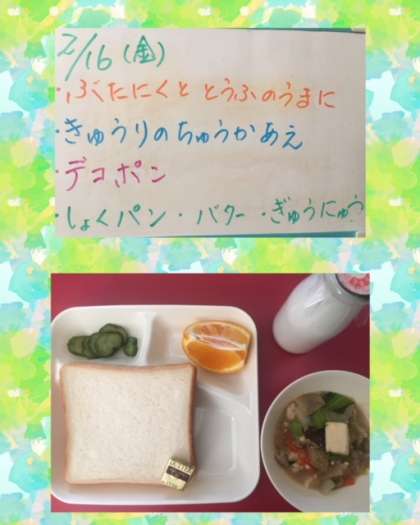 2/16(金)
・ぶたにくととうふのうまに
・きゅうりのちゅうかあえ
・デコポン
・しょくパン・バター・ぎゅうにゅう